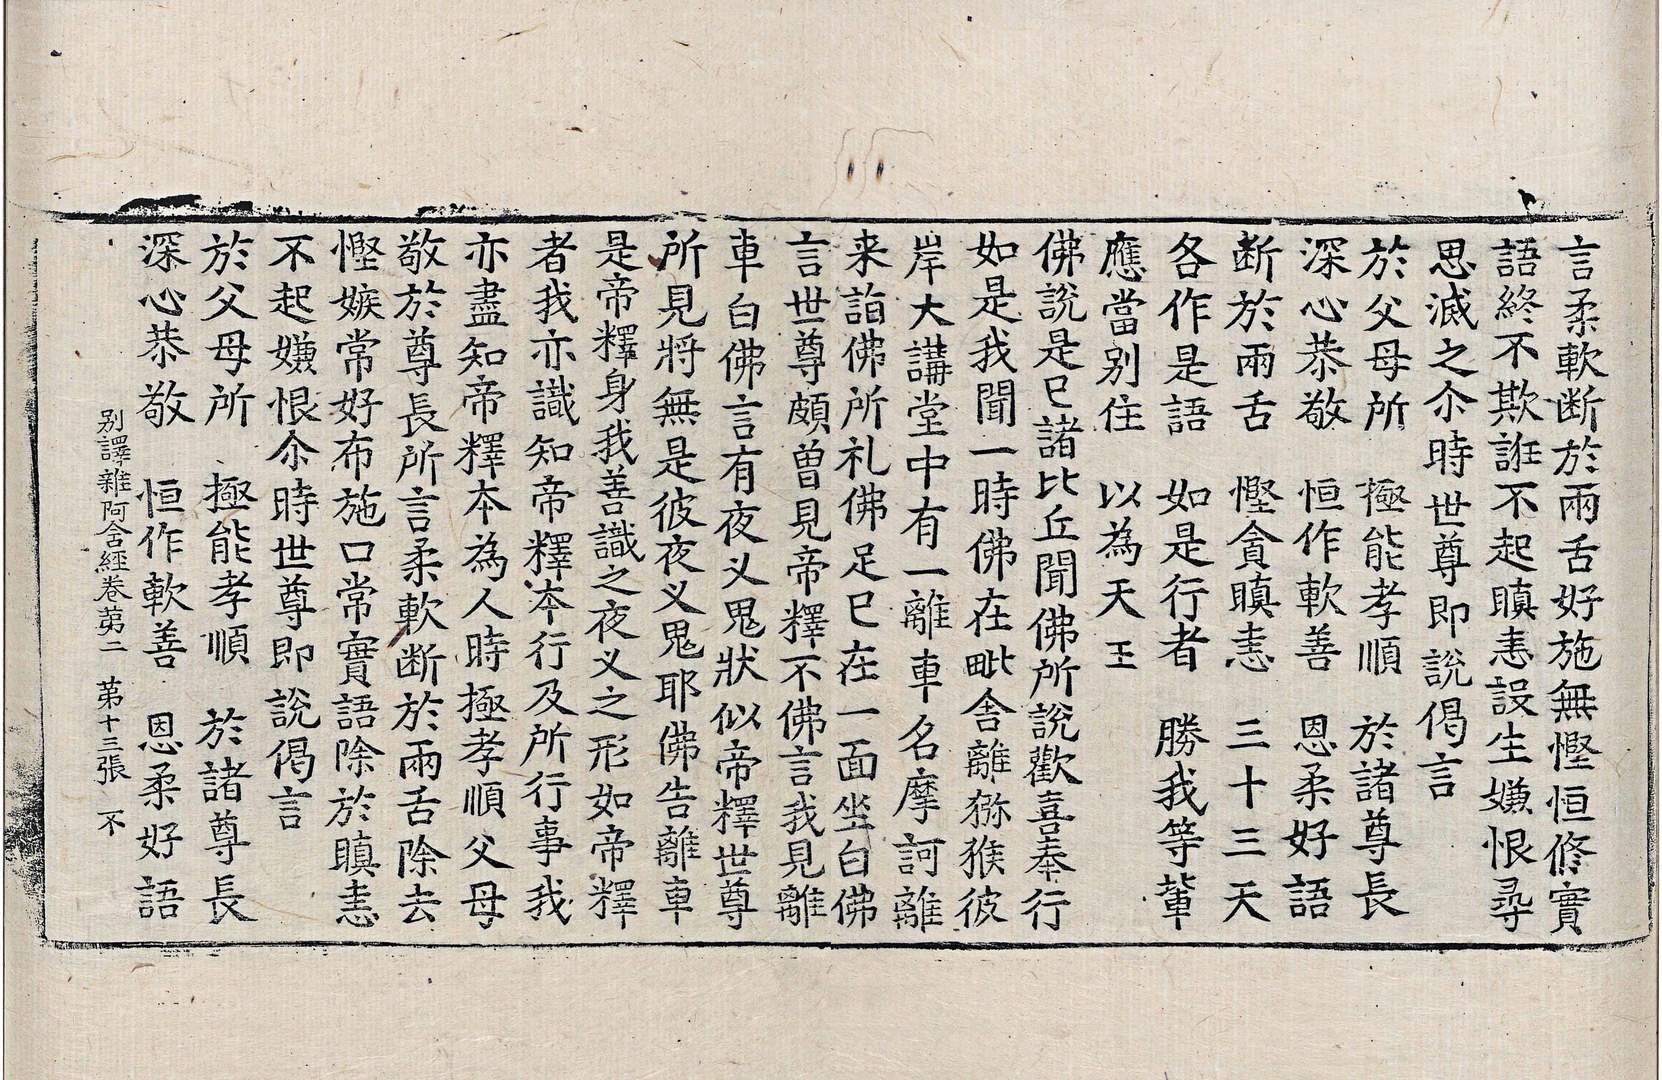 言柔軟断於兩舌好施無慳恒修實
語終不欺誑不起瞋恚設生嫌恨尋
思滅之尒時世尊即説偈言
於父母所　極能孝順　於諸尊長
深心恭敬　恒作軟善　恩柔好語
断於兩舌　慳貪瞋恚　三十三天
各作是語　如是行者　勝我等軰
應當别住　以為天王
佛說是已諸比丘聞佛所說歡喜奉行
如是我聞一時佛在毗舍離獼猴彼
岸大講堂中有一離車名摩訶離
来詣佛所礼佛足已在一面坐白佛
言世尊頗曽見帝釋不佛言我見離
車白佛言有夜义鬼狀似帝釋世尊
所見將無是彼夜义鬼耶佛告離車
是帝釋身我善識之夜义之形如帝釋
者我亦識知帝釋本行及所行事我
亦盡知帝釋本為人時極孝順父母
敬於尊長所言柔軟断於兩舌除去
慳嫉常好布施口常實語除於瞋恚
不起嫌恨尒時世尊即說偈言
於父母所　極能孝順　於諸尊長
别譯雜阿含經卷苐二　苐十三張　不
深心恭敬　恒作軟善　恩柔好語